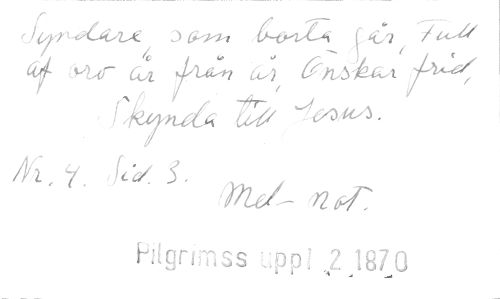 Syndare, som borta går, Full
af oro år från år, Önskar frid,
Skynda till Jesus.
Nr. 4. Sid. 3.
Mel- not.
Pilgrimss uppl 2 1870